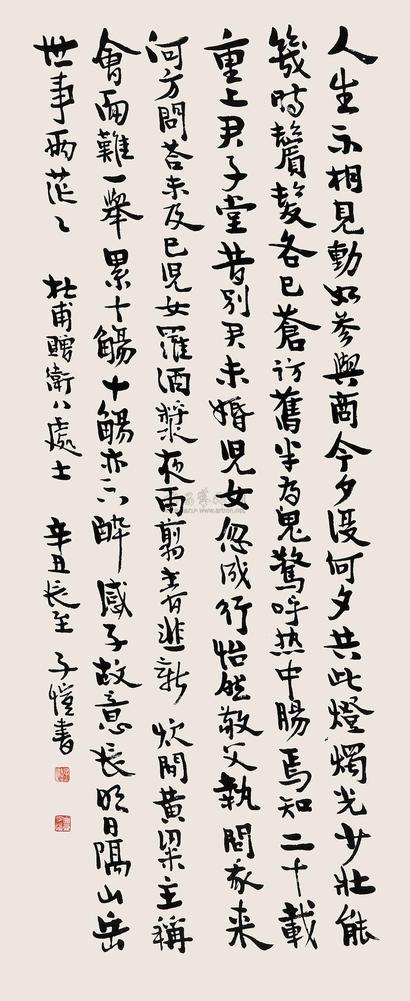 人生不相見動如參與商今夕復何夕共此燈燭光少壯能
幾時鬢髮各已蒼訪舊半為鬼驚呼热中腸焉知二十載
重上君子堂昔別君未婚児女忽成行怡然敬父執問我来
何方問荅未及已児女羅酒漿夜雨翦春韭新炊間黄粱主稱
會面難一舉累十觴十觴亦不醉感子故意長明日隔山岳
世事兩茫〻 杜甫贈衛八處士 辛丑長至 子愷書